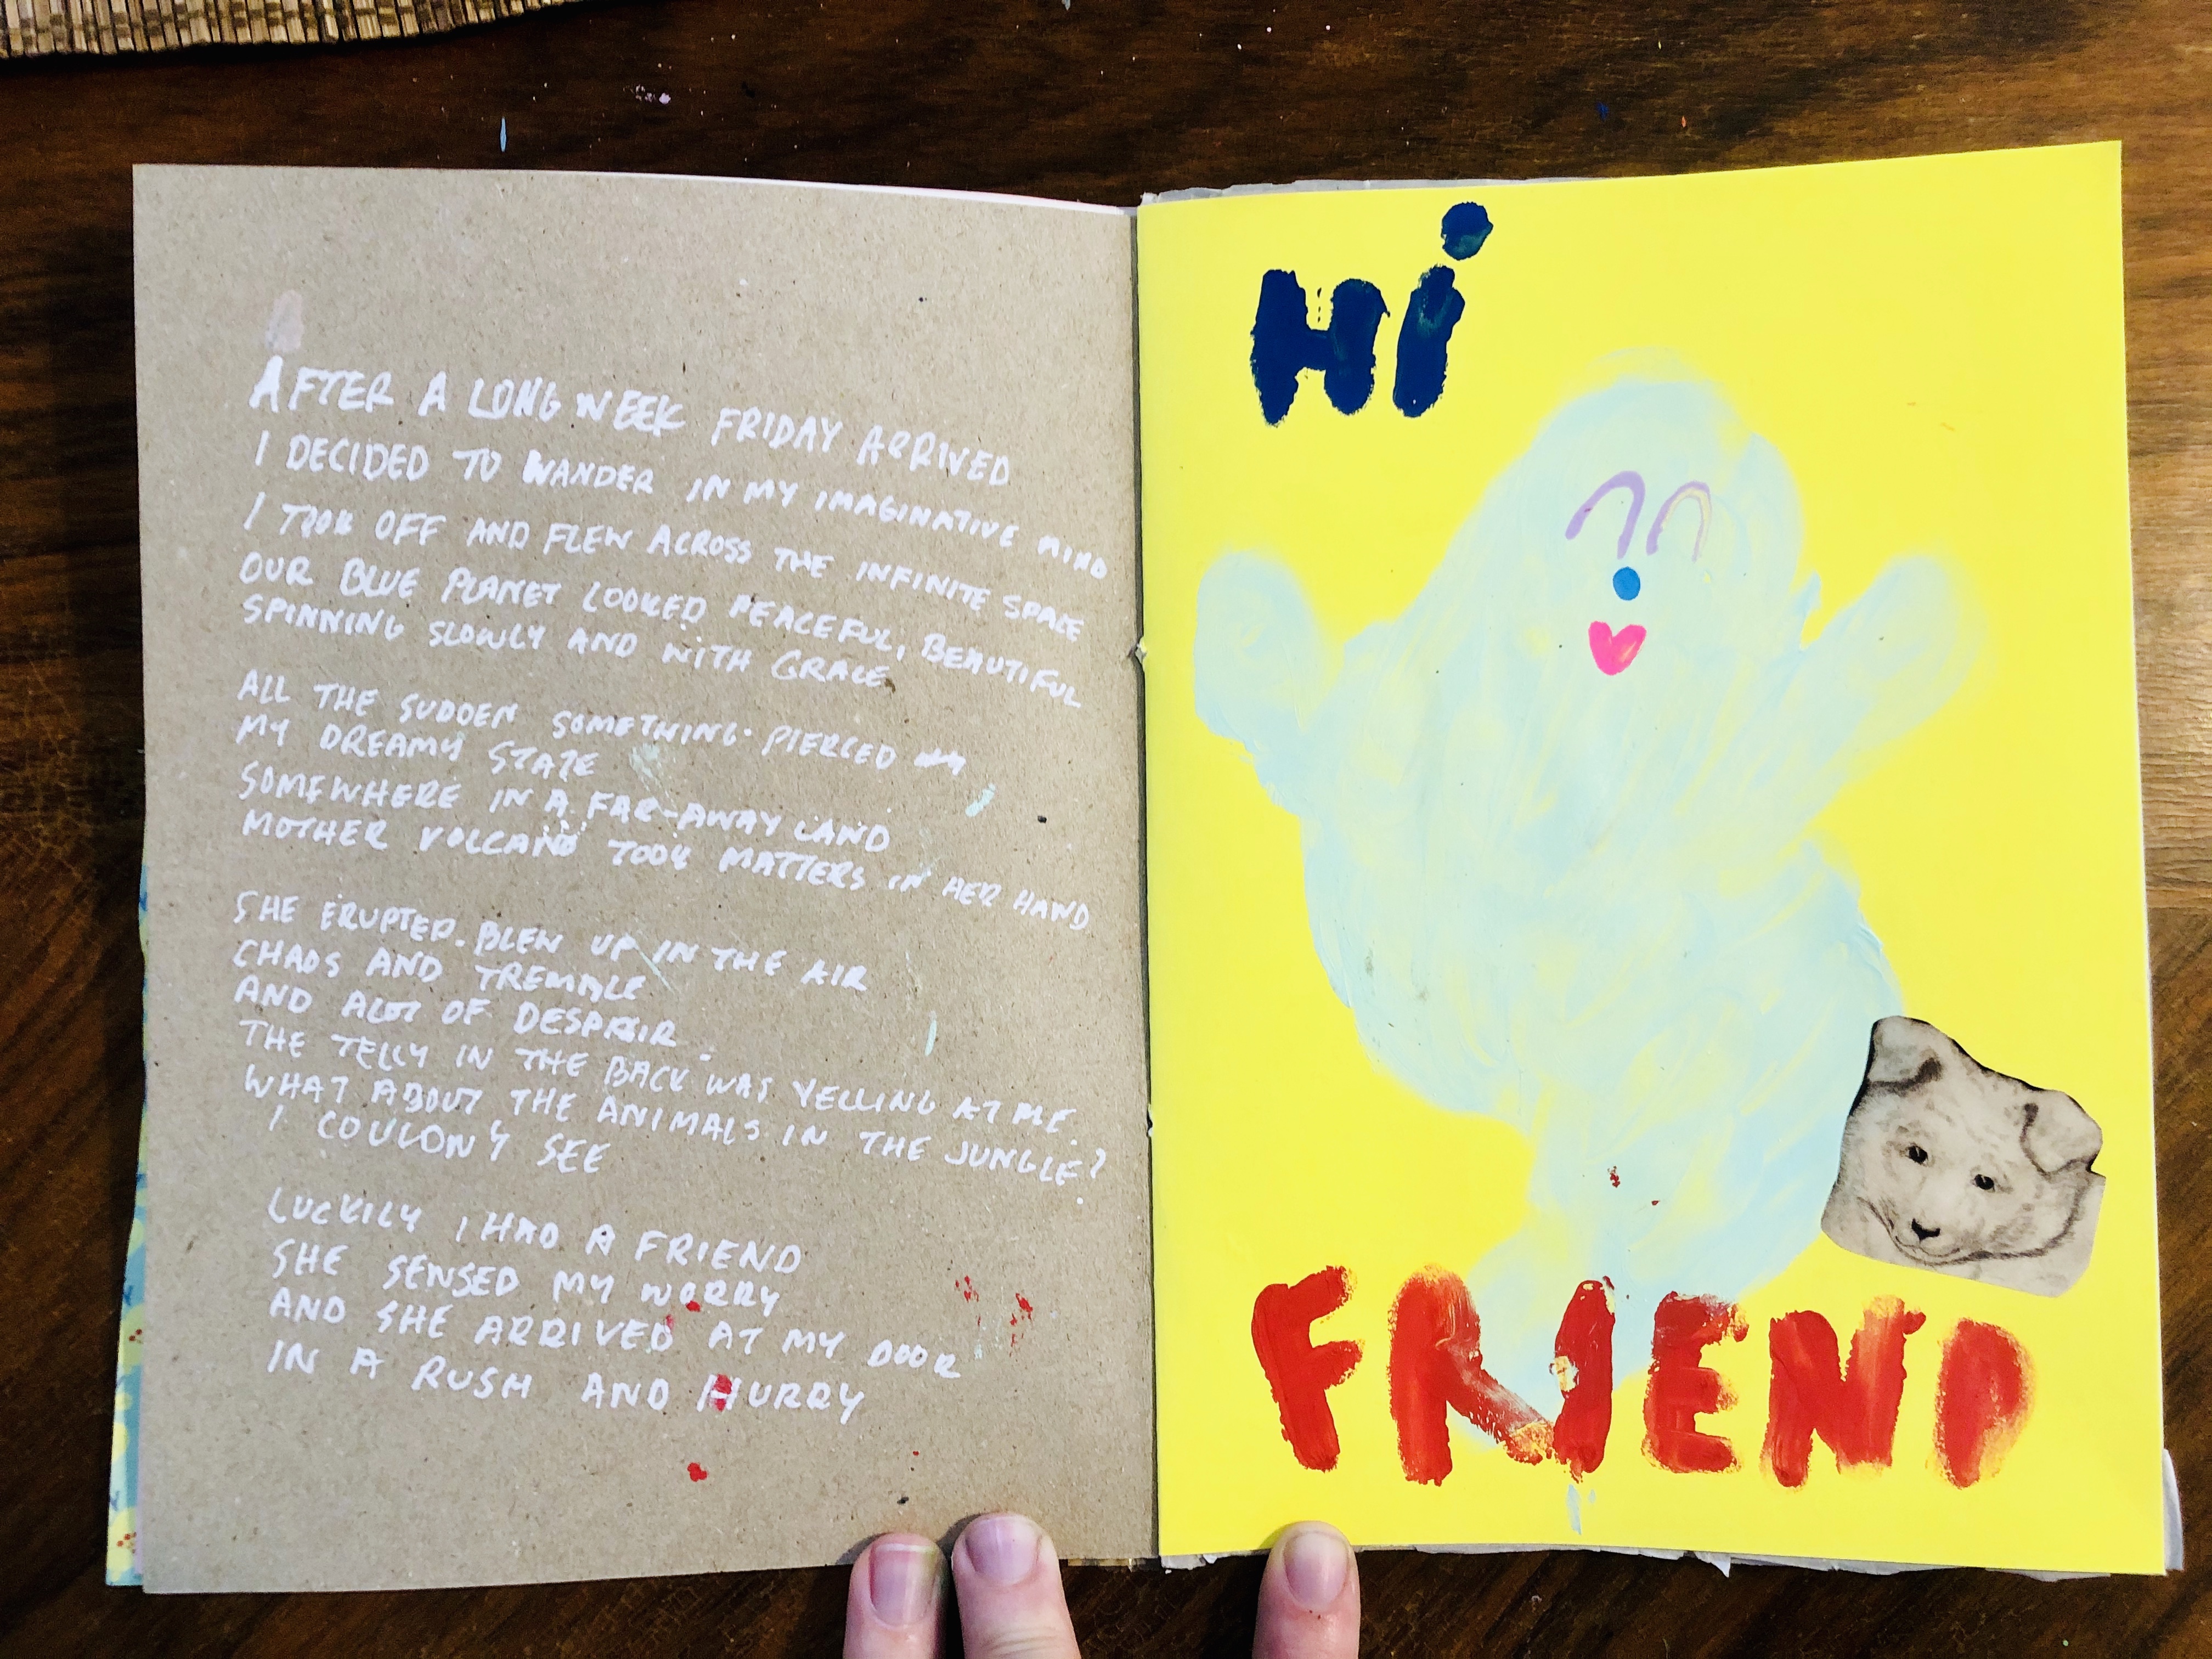 AFTER A LONG WEEK FRIDAY ARRIVED
I DECIDED TO WANDER IN MY IMAGINATIVE MIND
I TOOK OFF AND FLEW ACROSS THE INFINITE SPACE
OUR BLUE PLANET LOOKED PEACEFUL, BEAUTIFUL
SPINNING SLOWLY AND WITH GRACE
ALL THE SUDDEN SOMETHING PIERCED
MY DREAMY STATE
SOMEWHERE IN A FAR-AWAY LAND
MOTHER VOLCANO TOOK MATTERS IN HER HAND
SHE ERUPTED. BLEW UP IN THE AIR
CHAOS AND TREMBLE
AND ALOT OF DESPAIR.
THE TELLY IN THE BACK WAS YELLING AT ME.
WHAT ABOUT THE ANIMALS IN THE JUNGLE?
I COULDN'T SEE
LUCKILY I HAD A FRIEND
SHE SENSED MY WORRY
AND SHE ARRIVED AT MY DOOR
IN A RUSH AND HURRY
Hi
FRIEND